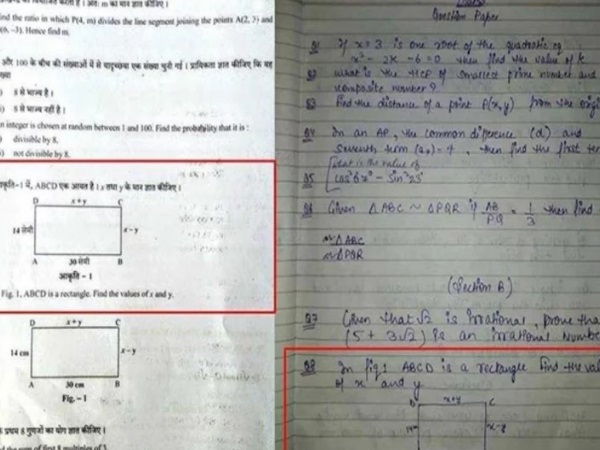 the ratio in which P(4, m) divides the line segment joining the points A(2, 3) and
(6, –3). Hence find m.
और 100 के बीच की संख्याओं में से यादृच्छया एक संख्या चुनी गई । प्रायिकता ज्ञात कीजिए कि यह
8 से भाज्य है ।
8 से भाज्य नहीं है ।
n integer is chosen at random between 1 and 100. Find the probability that it is :
divisible by 8.
not divisible by 8.
आकृति-1 में, ABCD एक आयत है । x तथा y के मान ज्ञात कीजिए ।
D x + y C
14 सेमी x – y
A 30 सेमी B
आकृति – 1
Fig. 1, ABCD is a rectangle. Find the values of x and y.
D x + y C
14 cm x – y
A 30 cm B
Fig. – 1
प्रथम 8 गुणजों का योग ज्ञात कीजिए ।
the sum of first 8 multiples of 3.
Question Paper
Q1 If x = 3 is one root of the quadratic eq
x² – 2k – 6 = 0 then find the value of k
Q2 What is the HCF of smallest prime number and
composite number?
Q3 Find the distance of a point P(x,y) from the origi
Q4 In an AP, the common difference (d) and
seventh term = 4, then find the first ter
What is the value of
Q5 cos² 67° – sin² 23°
Q6 Given △ABC ~ △PQR if AB/PQ = 1/3 then find
ar △ABC
ar △PQR
(Section B)
Q7 Given that √2 is irrational, prove tha
(5 + 3√2) is an irrational numbe
Q8 In fig 1 ABCD is a rectangle find the val
of x and y
D x+y C
14 x–y